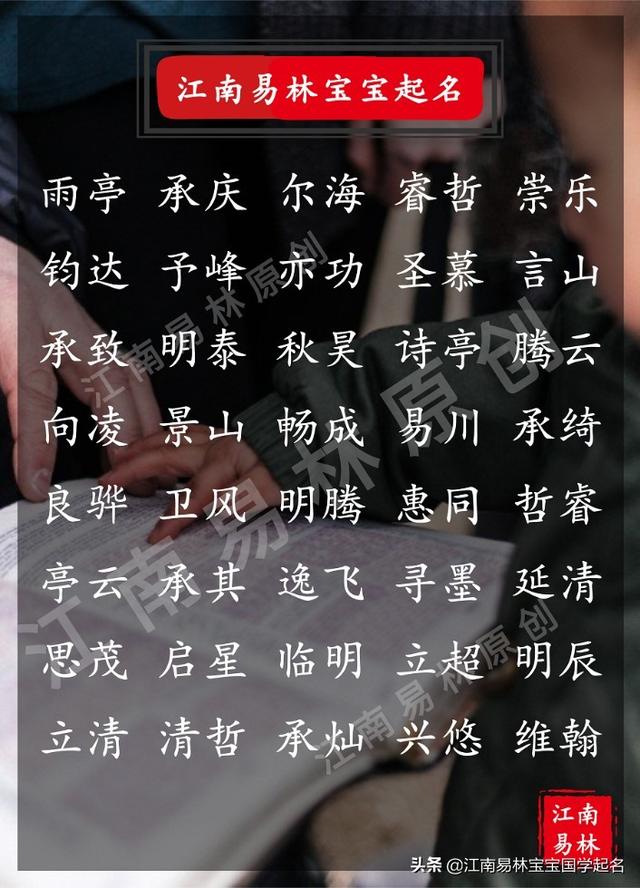 江南易林宝宝起名
雨亭 承庆 尔海 睿哲 崇乐
钧达 予峰 亦功 圣慕 言山
承致 明泰 秋昊 诗亭 腾云
向凌 景山 畅成 易川 承绮
良骅 卫风 明腾 惠同 哲睿
亭云 承其 逸飞 寻墨 延清
思茂 启星 临明 立超 明辰
立清 清哲 承灿 兴悠 维翰
江南易林原创
江南易林原创
江南易林原创
江南
易林
头条 @江南易林宝宝国学起名